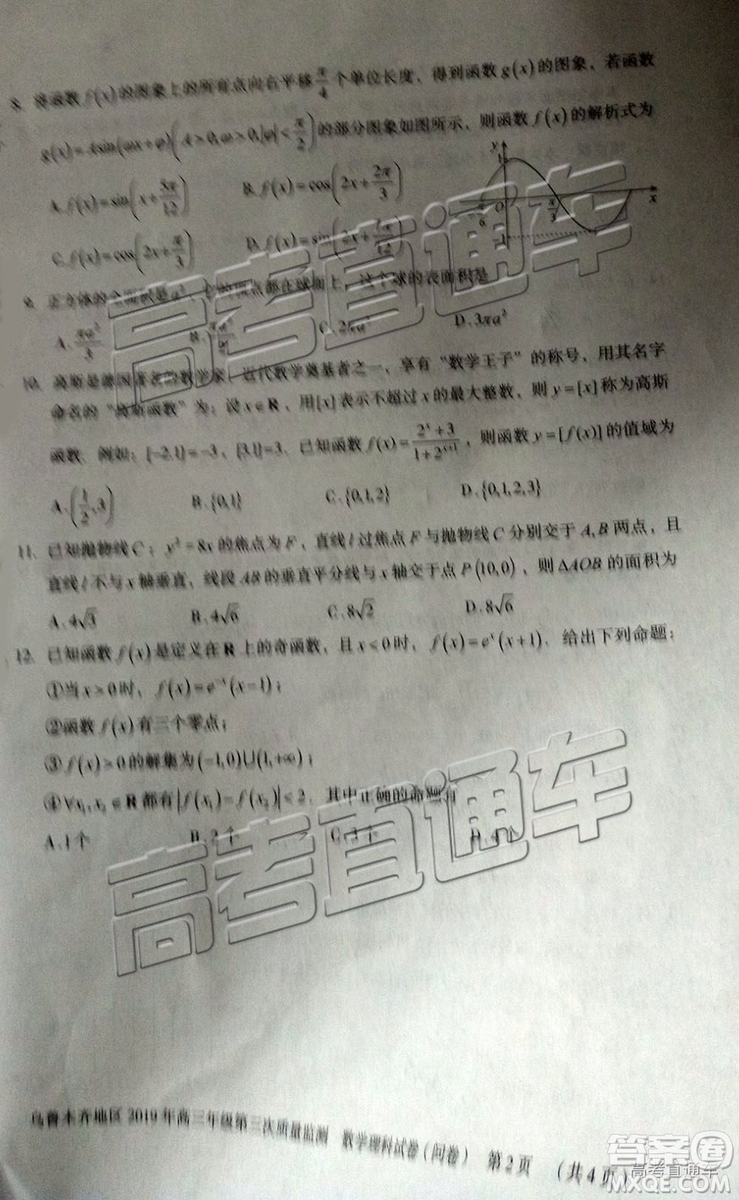 8. 将函数 f(x) 的图象上的所有点向右平移 π/4 个单位长度，得到函数 g(x) 的图象，若函数
g(x)=Asin(ωx+φ)(A>0,ω>0,|φ|<π/2) 的部分图象如图所示，则函数 f(x) 的解析式为
A. f(x)=sin(x+5π/12) B. f(x)=cos(2x+2π/3)
C. f(x)=cos(2x+π/3) D. f(x)=sin(2x+7π/12)
y
1
-π/6 O π/3 x
-1
9. 正方体的全面积是 a²，它的顶点都在球面上，这个球的表面积是
A. πa²/3 B. πa²/2 C. 2πa² D. 3πa²
10. 高斯是德国著名的数学家，近代数学奠基者之一，享有“数学王子”的称号，用其名字
命名的“高斯函数”为：设 x∈R，用[x]表示不超过 x 的最大整数，则 y=[x] 称为高斯
函数. 例如：[-2.1]=-3，[3.1]=3. 已知函数 f(x)=(2ˣ+3)/(1+2ˣ⁺¹)，则函数 y=[f(x)] 的值域为
A. (1/2,3) B. {0,1} C. {0,1,2} D. {0,1,2,3}
11. 已知抛物线 C：y²=8x 的焦点为 F，直线 l 过焦点 F 与抛物线 C 分别交于 A,B 两点，且
直线 l 不与 x 轴垂直，线段 AB 的垂直平分线与 x 轴交于点 P(10,0)，则 ΔAOB 的面积为
A. 4√3 B. 4√6 C. 8√2 D. 8√6
12. 已知函数 f(x) 是定义在 R 上的奇函数，且 x<0 时，f(x)=eˣ(x+1)，给出下列命题：
①当 x>0 时，f(x)=e⁻ˣ(x-1)；
②函数 f(x) 有三个零点；
③f(x)>0 的解集为 (-1,0)∪(1,+∞)；
④∀x₁,x₂∈R 都有 |f(x₁)-f(x₂)|<2. 其中正确的命题有
A. 1个 B. 2个 C. 3个 D. 4个
高考直通车
高考直通车
乌鲁木齐地区 2019 年高三年级第三次质量监测 数学理科试卷（问卷） 第2页 （共4页）
答案圈
高考直通车
MXQE.COM